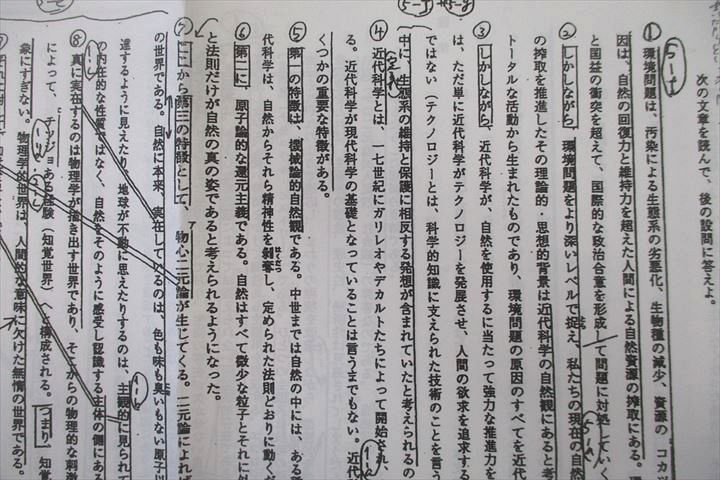 次の文章を読んで、後の設問に答えよ。
5-1
① 環境問題は、汚染による生態系の劣悪化、生物種の減少、資源の コカツ
因は、自然の回復力と維持力を超えた人間による自然資源の搾取にある。環
と国益の衝突を超えて、国際的な政治合意を形成して問題に対処していく
② しかしながら、環境問題をより深いレベルで捉え、私たちの現在の自然
の搾取を推進したその理論的・思想的背景は近代科学の自然観にあると考
トータルな活動から生まれたものであり、環境問題の原因のすべてを近代
③ しかしながら、近代科学が、自然を使用するに当たって強力な推進力を
は、ただ単に近代科学がテクノロジーを発展させ、人間の欲求を追求する
ではない（テクノロジーとは、科学的知識に支えられた技術のことを言う
中に、生態系の維持と保護に相反する発想が含まれていたと考えられるの
④ 近代科学とは、一七世紀にガリレオやデカルトたちによって開始され、
る。近代科学が現代科学の基礎となっていることは言うまでもない。近代
くつかの重要な特徴がある。
⑤ 第一の特徴は、機械論的自然観である。中世までは自然の中には、ある種
代科学は、自然からそれら精神性を剝奪し、定められた法則どおりに動くだ
⑥ 第二に、原子論的な還元主義である。自然はすべて微少な粒子とそれに外
と法則だけが自然の真の姿であると考えられるようになった。
⑦ ここから第三の特徴として、物心二元論が生じてくる。二元論によれば
の世界である。自然に本来、実在しているのは、色も味も臭いもない原子以
達するように見えたり、地球が不動に思えたりするのは、主観的に見られて
の内在的な性質ではなく、自然をそのように感受し認識する主体の側にある
⑧ 真に実在するのは物理学が描き出す世界であり、そこからの物理的な刺激
によって、 ある経験（知覚世界）へと構成される。つまり、知覚
象にすぎない。物理学的世界は、人間的な意味に欠けた無情の世界である。